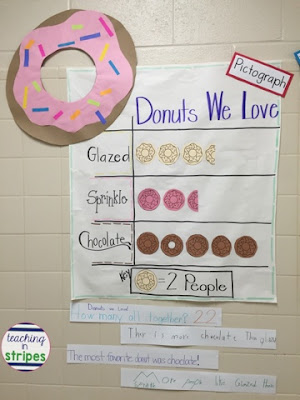 Pictograph
Donuts We Love
Glazed
Sprinkle
Chocolate
Key
=2 People
Donuts we Love
How many all together? 22
more chocolate than glazed
The most favorite donut was choclate!
More like Glazed than
teaching in
stripes